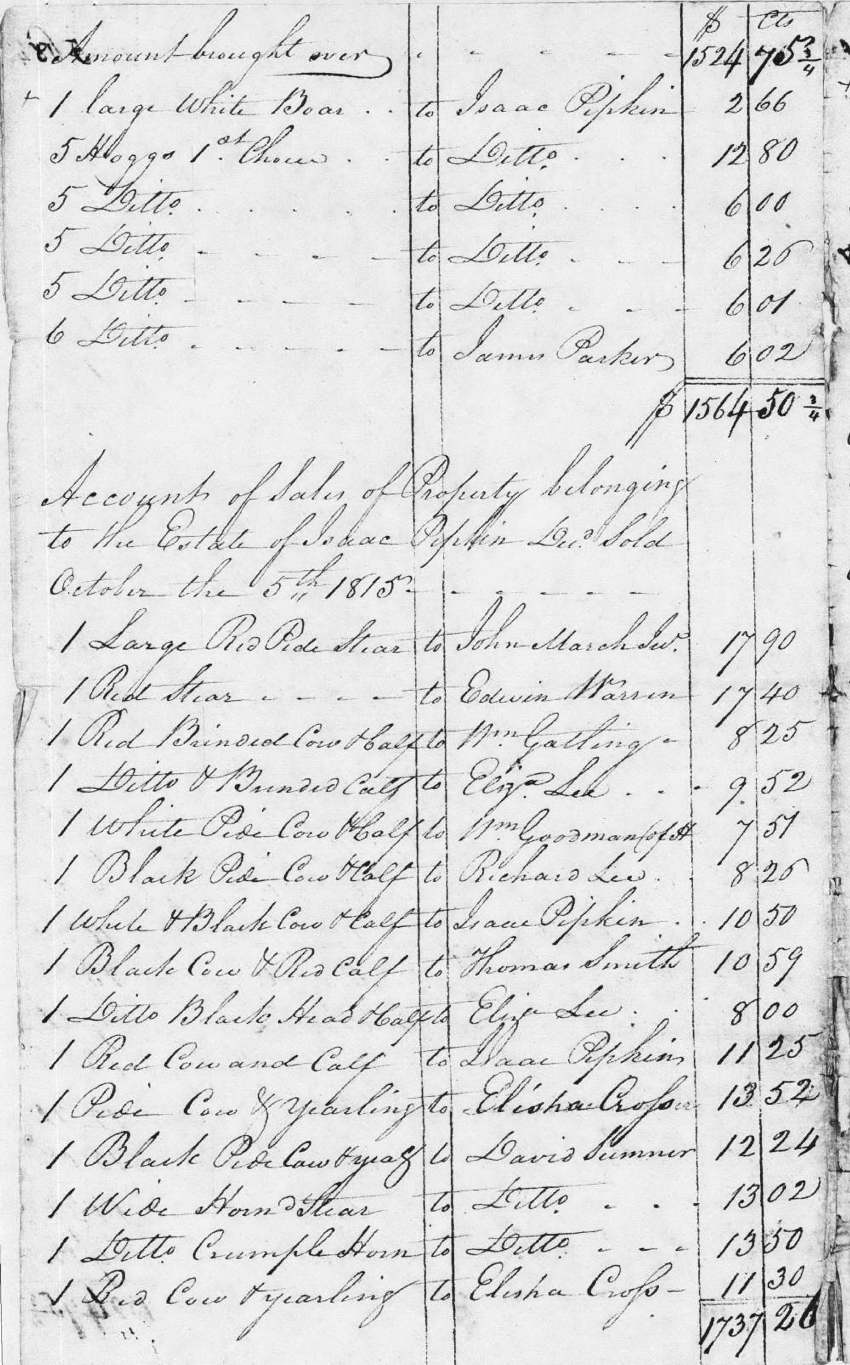 $ Cts
Amount brought over 1524 75 3/4
1 large White Boar to Isaac Pipkin 2 66
5 Hoggs 1st Choice to Ditto 12 80
5 Ditto to Ditto 6 00
5 Ditto to Ditto 6 26
5 Ditto to Ditto 6 01
6 Ditto to James Parker 6 02
$ 1564 50 3/4
Account of Sales of Property belonging
to the Estate of Isaac Pipkin Decd. Sold
October the 5th 1815
1 Large Red Pide Stear to John March Senr. 17 90
1 Red Stear to Edwin Warren 17 40
1 Red Brinded Cow & Calf to Wm Gatling 8 25
1 Ditto & Brinded Calf to Eliza. Lee 9 52
1 White Pide Cow & Calf to Wm Goodman (of H 7 51
1 Black Pide Cow & Calf to Richard Lee 8 26
1 White & Black Cow & Calf to Isaac Pipkin 10 50
1 Black Cow & Red Calf to Thomas Smith 10 59
1 Ditto Black Head & Calf to Eliza Lee 8 00
1 Red Cow and Calf to Isaac Pipkin 11 25
1 Pide Cow & yearling to Elisha Cross 13 52
1 Black Pide Cow & yearg to David Sumner 12 24
1 Wide Hornd Stear to Ditto 13 02
1 Ditto Crumple Horn to Ditto 13 50
1 Red Cow & yearling to Elisha Cross 11 30
1737 26